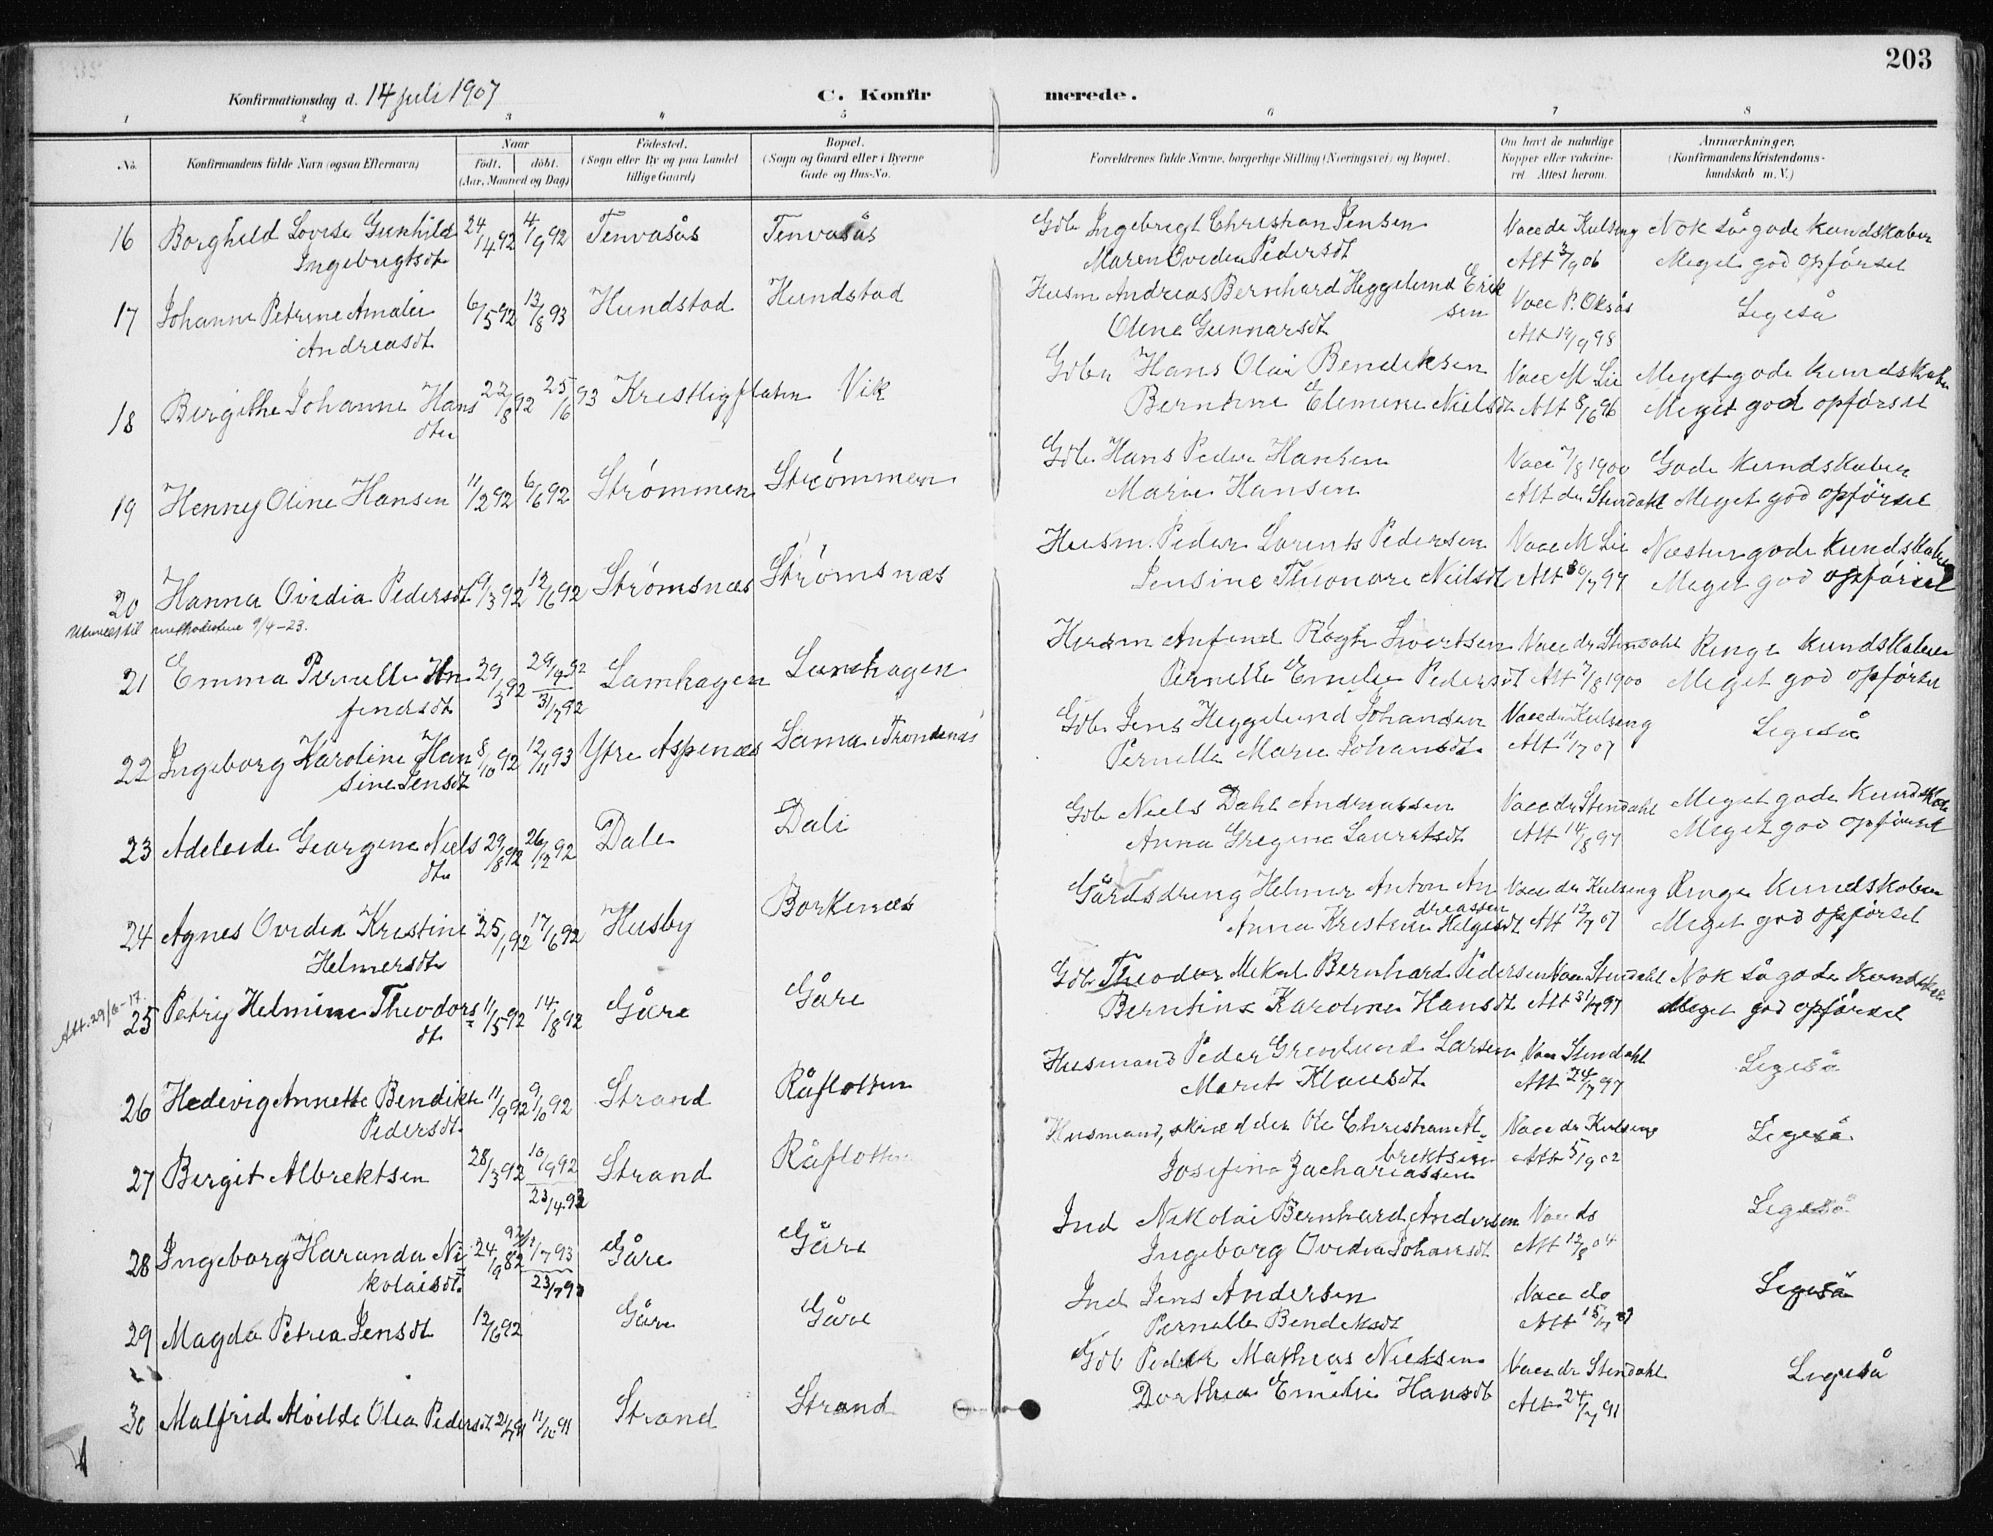 203
Konfirmationsdag d. 14 juli 1907 C. Konfirmerede.
1 2 3 4 5 6 7 8
No. Konfirmandens fulde Navn (ogsaa Efternavn) Naar født. døbt. (Aar, Maaned og Dag) Fødested. (Sogn eller By og paa Landet tillige Gaard) Bopæl. (Sogn og Gaard eller i Byerne Gade og Hus-No. Forældrenes fulde Navne, borgerlige Stilling (Næringsvei) og Bopæl. Om havt de naturlige Kopper eller vakcineret Attest herom. Anmærkninger. (Konfirmandens Kristendomskundskab m. V.)
16 Borghild Lovise Gunhild 24/4 92 4/9 92 Tenvasås Tenvasås Gdb Ingebrigt Christian Jensen Vacc dr Kulseng Nok så gode kundskaber
Ingebrigtsdt Maren Ovedia Pedersdt Att 3/9 06 Meget god opførsel
17 Johanne Petrine Amalie 6/5 92 13/8 93 Hundstad Hundstad Husm Andreas Bernhard Heggelund Erik Vacc P. Oksås Ligeså
Andreasdt sen
Oline Gunnarsdt Att 19/9 98
18 Birgithe Johanne Hans 22/8 92 25/6 93 Vik Gdbr Hans Olai Bendiksen Vacc M Lie Meget gode kundskaber
dtr Berntine Elemine Nielsdt Att 8/6 96 Meget god opførsel
19 Henny Oline Hansen 11/2 92 6/6 92 Strømmen Strømmen Gdb. Hans Peder Hansen Vacc 7/8 1900 Gode kundskaber
Marie Hansen Att dr Stendahl Meget god opførsel
20 Hanna Ovidia Pedersdt 9/3 92 12/6 92 Strømsnæs Strømsnæs Husm. Peder Lorents Pedersen Vacc M Lie Næsten gode kundskaber
Udmeldt til methodisterne 9/4-23. Jensine Theonore Neilsdt Att 30/7 97 Meget god opførsel
21 Emma Pernille An 29/3 92 29/9 92 Lamhagen Lamhagen Husm Anfind Røgh Sivertsen Vacc dr Stendahl Ringe kundskaber
findsdt 31/7 92 Pernille Emelie Pedersdt Att 7/8 1900 Meget god opførsel
22 Ingeborg Karoline Han 8/10 92 12/11 93 Ytre Aspenæs Sama i Trondenæs Gdb Jens Heggelund Johansen Vacc dr Kulseng Ligeså
sine Jensdt Pernille Marie Johansdt Att 11/7 07
23 Adeleide Georgine Niels 29/8 92 26/12 92 Dale Dale Gdb Niels Dahl Andreassen Vacc dr Stendahl Meget gode kundskab
dtr Anna Gregine Lauritsdt Att 14/8 97 Meget god opførsel
24 Agnes Ovidia Kristine 25/1 92 17/6 92 Husby Borkenæs Gårdsdreng Helmer Anton An Vacc dr Kulseng Ringe kundskaber
Helmersdt dreassen
Anna Kristine Helgesdt Att 12/7 07 Meget god opførsel
Att. 29/6-17.
25 Petry Helmine Theodors 11/5 92 14/8 92 Gåre Gåre Gdb Theodor Mekal Bernhard Pedersen Vacc Stendahl Nok så gode kundskab
dt. Berntine Karoline Hansdt Att 31/7 97 Meget god opførsel
26 Hedevig Annette Bendikte 11/9 92 9/10 92 Strand Råflotten Husmand Peder Grenlund Larsen Vacc Stendahl Ligeså
Pedersdt. Marit Klausdt Att 24/7 97
27 Bergit Albrektsen 28/3 92 10/9 92 Strand Råflotten Husmand, skrædder Ole Christian Al- Vacc dr Kulseng Ligeså
23/4 93 brektsen
Josefine Zachariassen Att 5/9 02
28 Ingeborg Haranda Ni 24/9 92 Gåre Gåre Ind Nikolai Bernhard Andersen Vacc do Ligeså
kolaisdt. 23/7 93 Ingeborg Ovidia Johansdt Att 12/8 04
29 Magda Petrea Jensdt 12/6 92 Gåre Gåre Ind Jens Andersen Vacc do Ligeså
Pernille Bendeksdt
30 Malfrid Alvilde Olea Pedersdt Strand Strand Gdb Peder Mathias Nielsen Vacc dr Stendahl Ligeså
Dorthea Emilie Hansdt Att 24/7 91